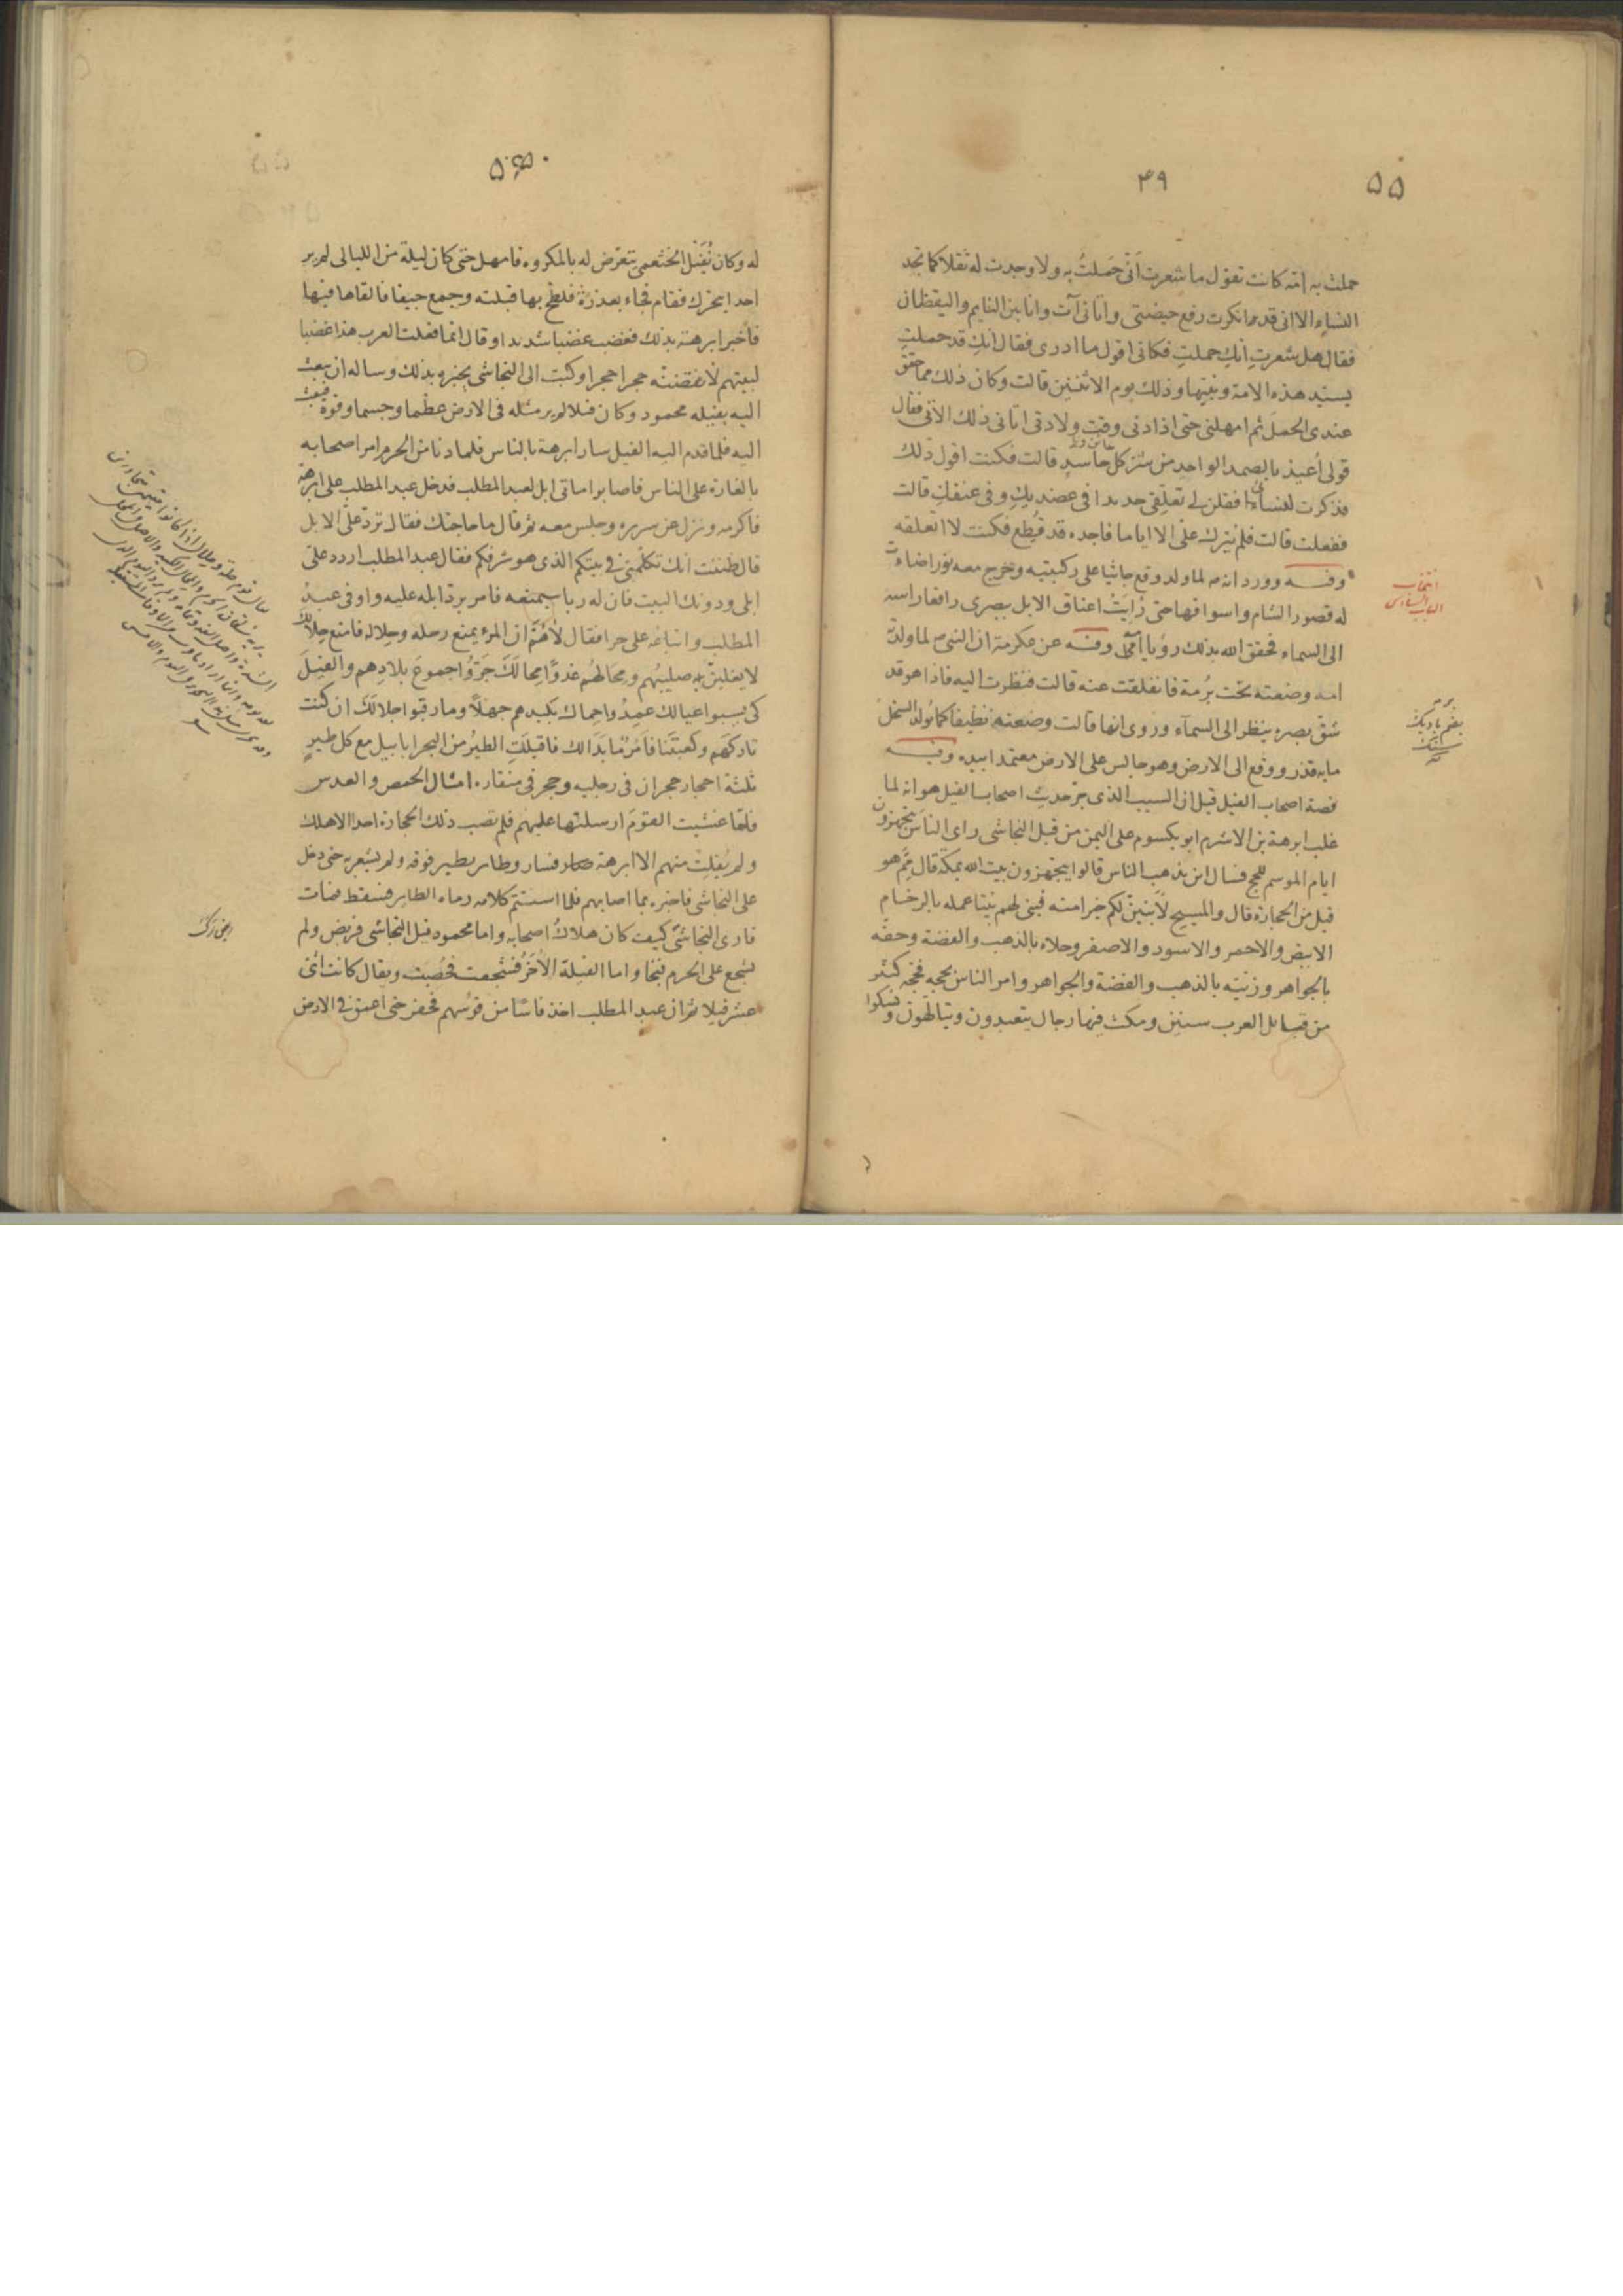 ۵۵
۴۹
حملت به امّه كانت تقول ما شعرت اَنّى حَمَلتُ به ولا وجدت له ثقلا كما تجد
النساء الا انى قد انكرت رفع حيضتى واتانى آت وانا بين النايم واليقظان
فقال هل شعرتِ انكِ حملتِ فكانى اقول ما ادرى فقال انكِ قد حملتِ
بسيد هذه الامة ونبيها وذلك يوم الاثنين قالت وكان ذلك مما حقق
عندى الحملَ ثم امهلنى حتى اذا دنى وقت ولادتى اتانى ذلك الآتى فقال
قولى اُعيذه بالصمد الواحدِ من شرّ كل حاسدٍ قالت فكنت اقول ذلك
فذكرت للنساء فقلن لى تعلقى حديدا فى عضديكِ وفى عنقكِ قالت
ففعلت قالت فلم يترك علىّ الا اياما فاجده قد قُطِع فكنت لا اتعلقه
وفـــه وورد انه لما ولد وقع جاثيا على ركبتيه وخرج معه نور اضاءت
له قصور الشام واسواقها حتى رُايَتْ اعناق الابل ببصرى رافعا راسه
الى السماء فحقق الله بذلك رؤيا امّى وفــه عن عكرمة ان النبى لما ولدته
امه وضعته تحت بُرمة فانفلقت عنه قالت فنظرت اليه فاذا هو قد
شقّ بصره ينظر الى السمآء وروى انها قالت وضعته نظيفا كما يُولد السخل
ما به قذر ووقع الى الارض وهو جالس على الارض معتمد ا بيده وفــه
قصة اصحاب الفيل قيل ان السبب الذى جرّ حديث اصحاب الفيل هو انه لما
غلب ابرهة بن الاشرم ابو يكسوم على اليمن من قبل النجاشى راى الناس يتجهزون
ايام الموسم للحج فسال اين يذهب الناس قالوا يتجهزون بيت الله بمكة قال مِمَّ هو
قيل من الحجارة قال والمسيح لأبنينّ لكم خيرا منه فبنى لهم بيتا عمله بالرخام
الابيض والاحمر والاسود والاصفر وحلاه بالذهب والفضة وحفّه
بالجواهر وزينه بالذهب والفضة والجواهر وامر الناس بحجه فحجّه كثير
من قبائل العرب سنين ومكث فيها رجال يتعبدون ويتالهون ونسكوا
انتخاب
الباب السادس
برمه
بضم با ديك
سنگ
۵۰
له وكان نُفَيْل الخثعمى يتعرّض له بالمكروه فامهل حتى كان ليلة من الليالى لم ير
احدا يتحرك فقام فجاء بعذرة فلطخ بها قبلته وجمع جيفا فالقاها فيها
فاخبر ابرهة بذلك فغضب غضبا شديدا وقال انما فعلت العرب هذا غضبا
لبيتهم لأنقضنّه حجرا حجرا وكتب الى النجاشى يخبره بذلك وساله ان يبعث
اليه بفيله محمود وكان فيلا لم ير مثله فى الارض عظما وجسما وقوة فبعث
اليه فلما قدم اليه الفيل سار ابرهة بالناس فلما دنا من الحرم امر اصحابه
بالغارة على الناس فاصابوا ماتى ابل لعبد المطلب فدخل عبد المطلب على ابرهة
فاكرمه ونزل عن سريره وجلس معه ثم قال ما حاجتك فقال تردّ علىّ الابل
قال ظننت انك تكلّمنى فى بيتكم الذى هو شرفكم فقال عبد المطلب اردد علىّ
ابلى ودونك البيت فان له ربا سيمنعه فامر بردّ ابله عليه واوفى عبدُ
المطلب واتباعُه على حرا فقال لاهُمّ ان المرء يمنع رحله وحِلاله فامنع حِلالَك
لا يغلبنّ صليبُهم ومِحَالهُم غدوًا مِحالَكْ جَرّوُا جموعَ بلادِهم والفيلَ
كى يسبوا عيالك عمدوا حماك بكيدهم جهلاً وما رقبوا جلالَكَ ان كنت
تاركَهم وكعبتَنا فاَمْرٌ مّا بَدَا لك فاقبلتِ الطيرُ من البحر ابابيل مع كل طيرٍ
ثلثة احجار حجران فى رجليه وحجر فى منقاره امثال الحمص والعدس
فلمّا غشيت القومَ ارسلتها عليهم فلم تصب ذلك الحجارة احدا الا هلك
ولم يُفلِتْ منهم الا ابرهة فسار وطاير يطير فوقه ولم يشعر به حتى دخل
على النجاشى فاخبره بما اصابهم فلما استتم كلامه رماه الطاير فسقط فمات
فارى النجاشىَّ كيف كان هلاكُ اصحابه واما محمود فيل النجاشى فربض ولم
يشجع على الحرم فنجا واما الفيلة الأُخَرُ فشجعت فحُصِبَت ويقال كانت اثنى
عشر فيلا ثم ان عبد المطلب اخذ فاسًا من فوسهم فحفر حتى اعمق فى الارض